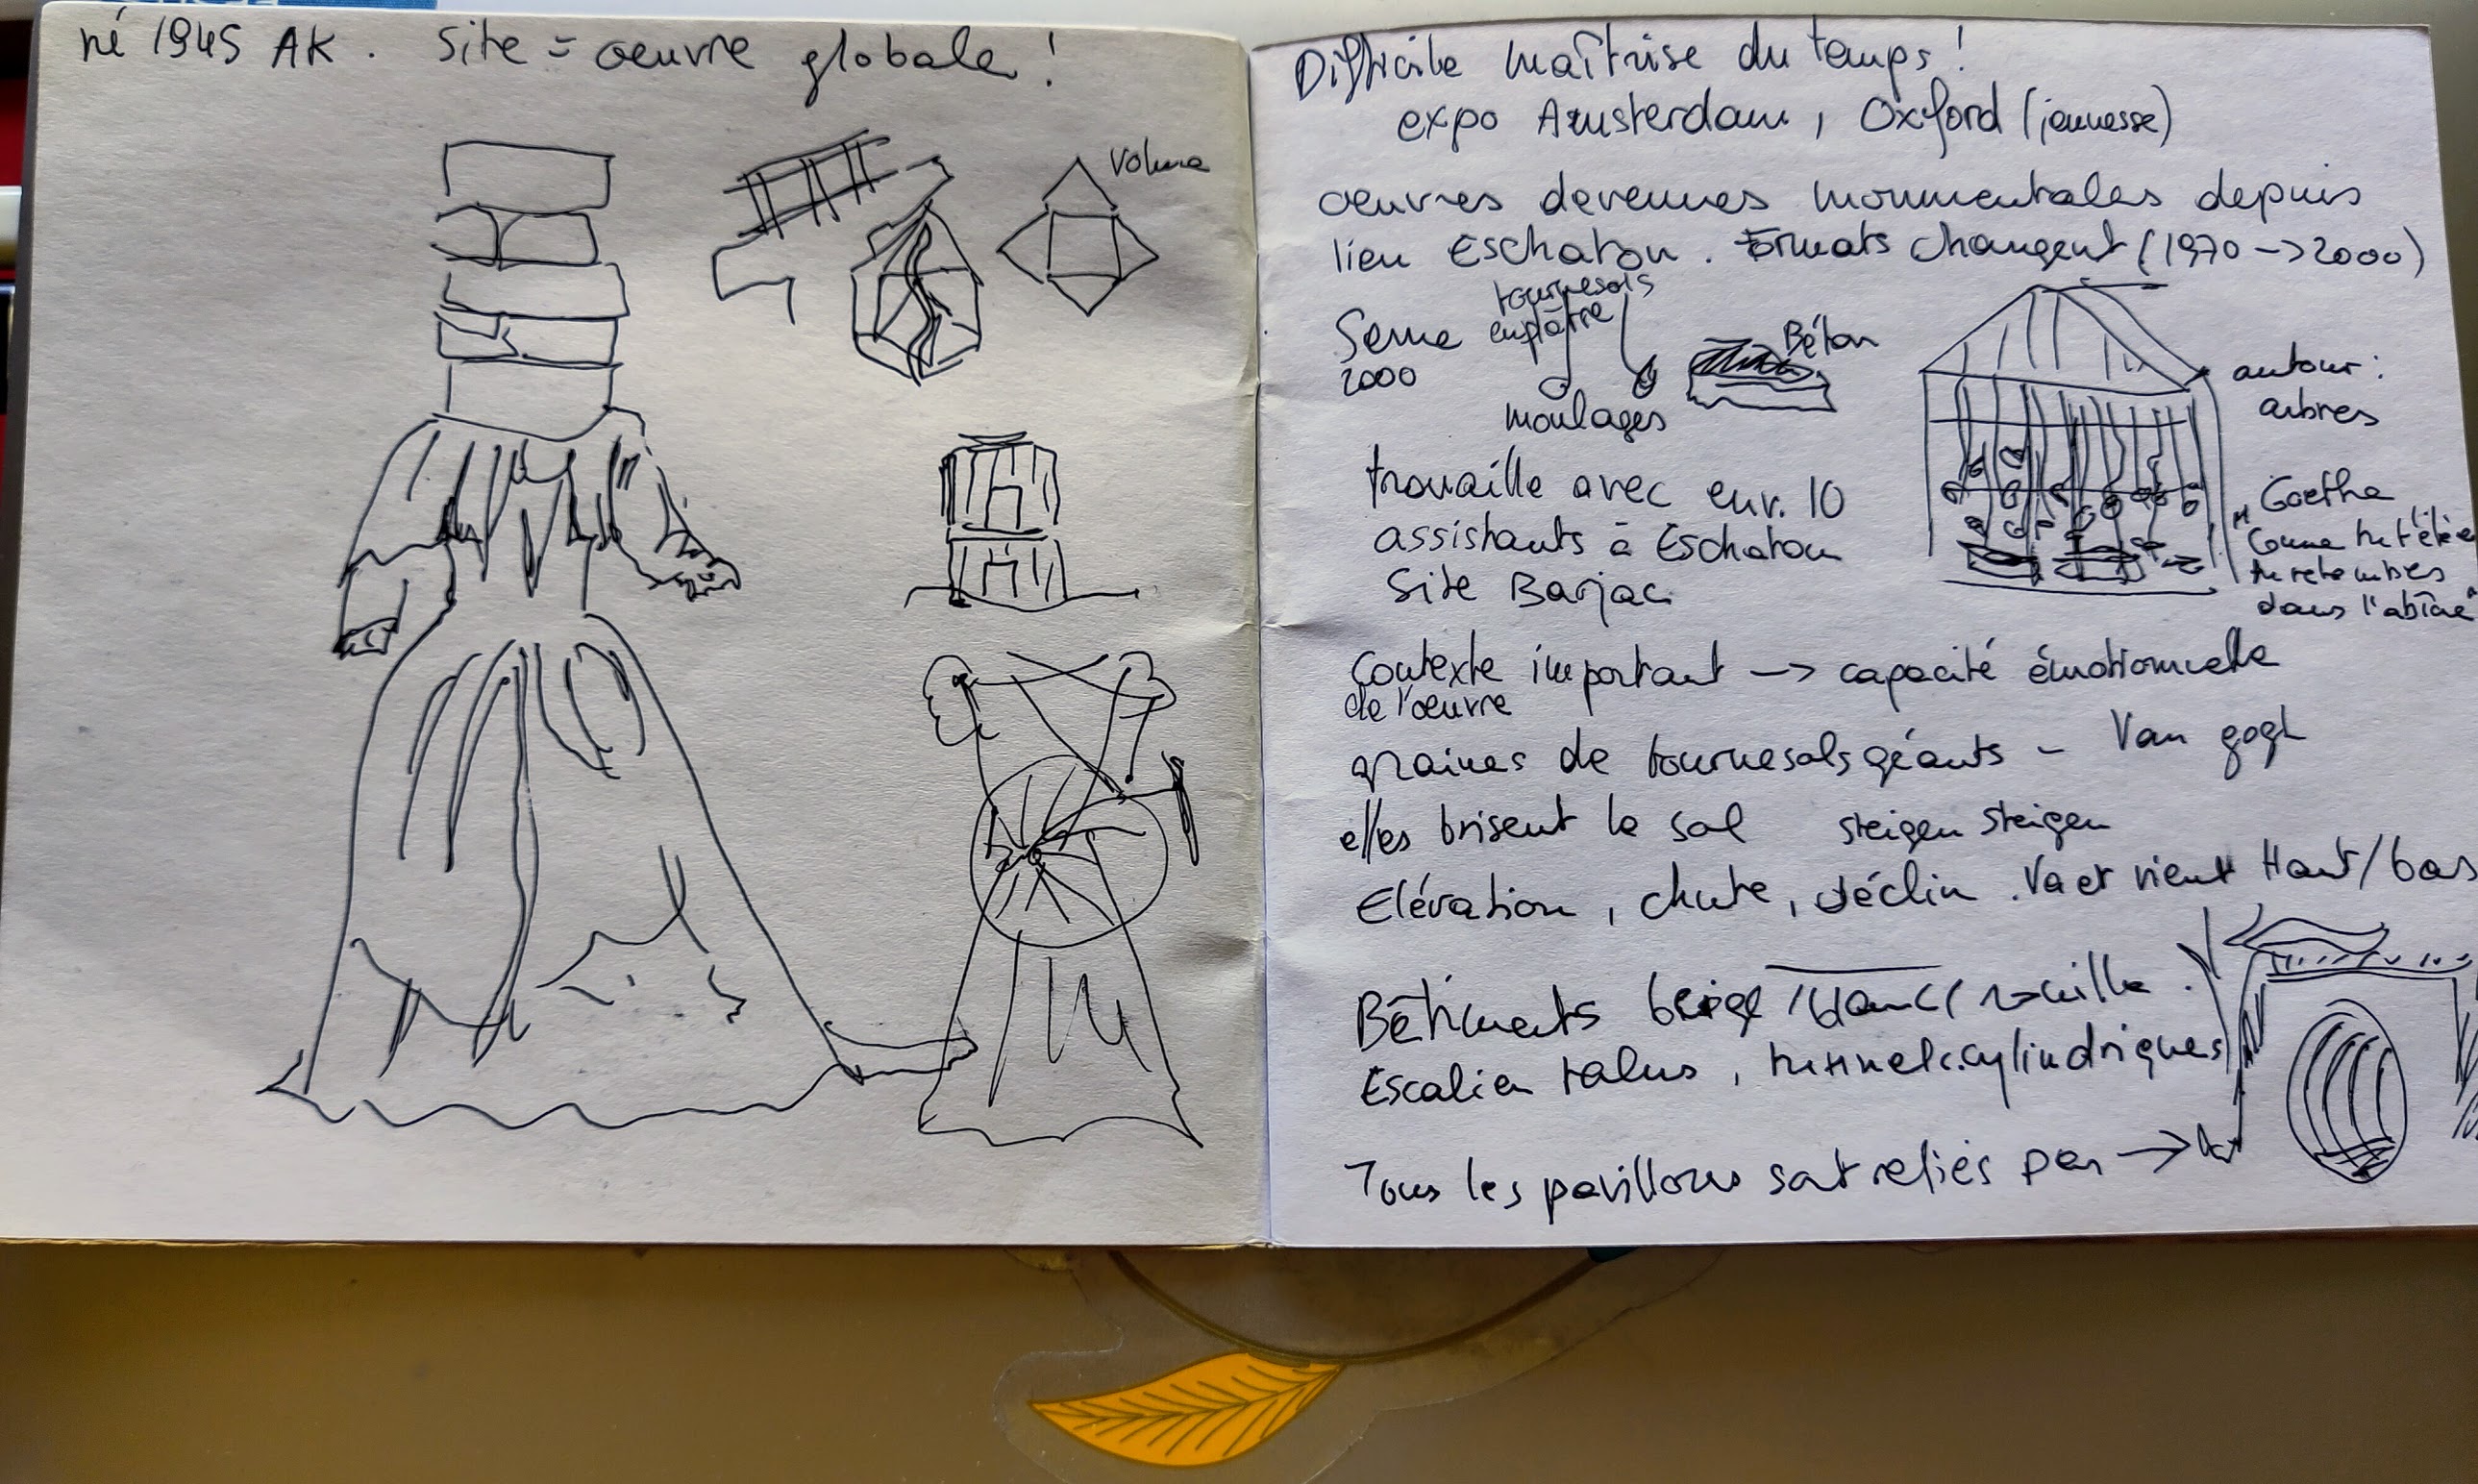 né 1945 AK. Site = œuvre globale !
Volume
Difficile maîtrise du temps !
expo Amsterdam, Oxford (jeunesse)
œuvres devenues monumentales depuis
lieu Eschaton. Formats changent (1970 -> 2000)
tournesols
en plâtre
Serre
2000
moulages
Béton
autour :
arbres
travaille avec env. 10
assistants à Eschaton
Site Barjac
Goethe
"Comme tu t'élèves
tu retombes
dans l'abîme"
Contexte important -> capacité émotionnelle
de l'œuvre
graines de tournesols géants - Van gogh
elles brisent le sol steigen steigen
Elévation, chute, déclin. Va et vient Haut/bas
Bâtiments beige / blanc / rouille.
Escalier talus, tunnels cylindriques
Tous les pavillons sont reliés par ->